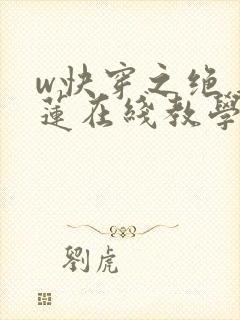 w快穿之绝
蓮在綫教學
劉虎